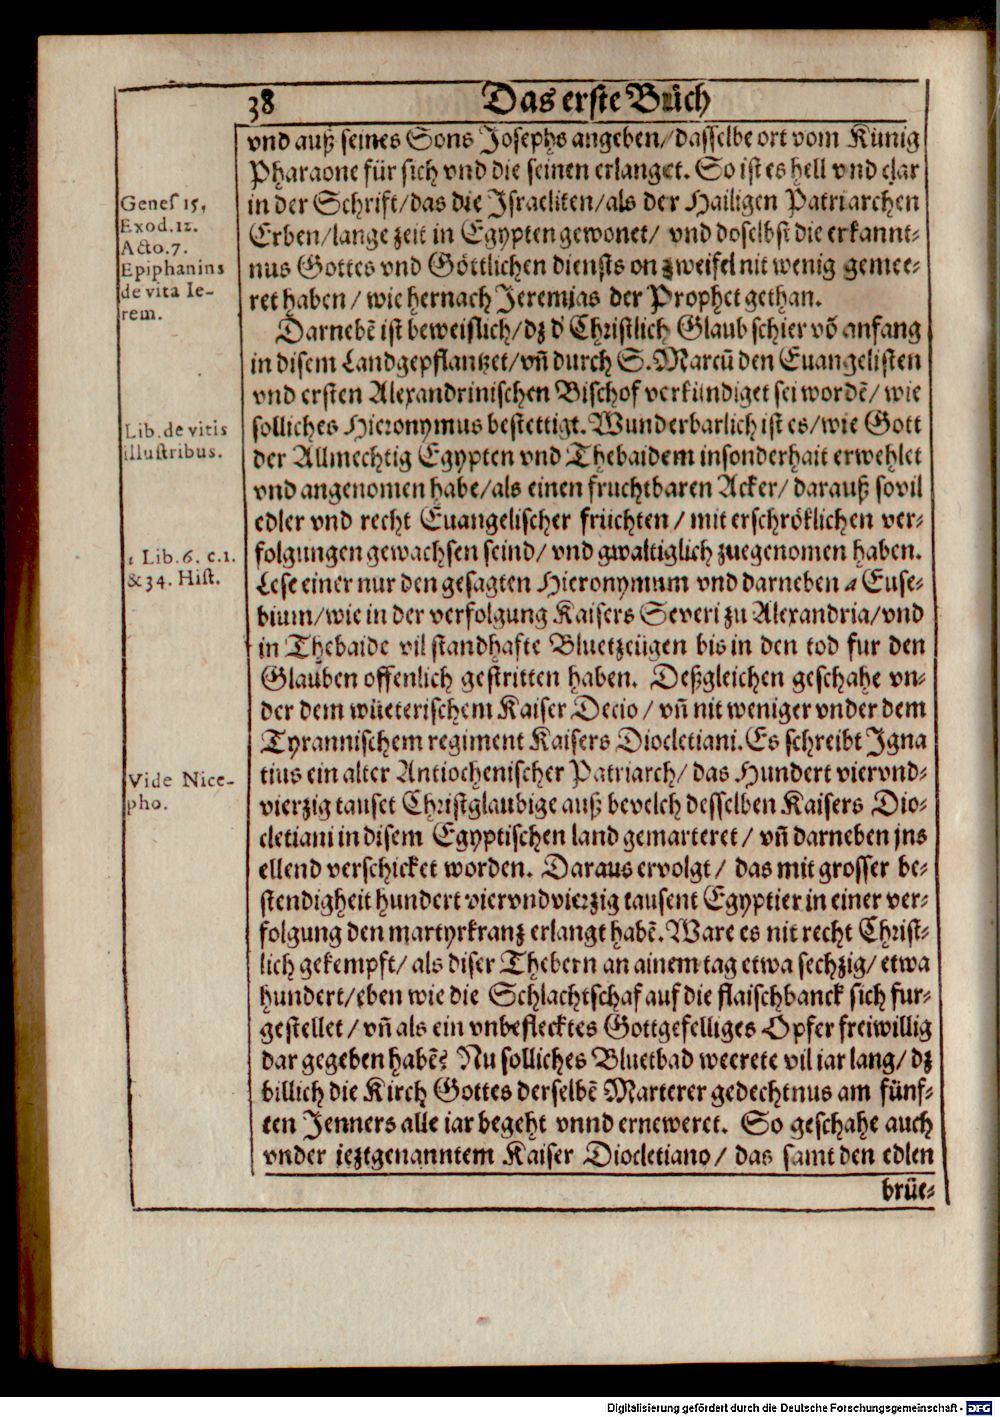 38 Das erste Buͤch
vnd auß seines Sons Josephs angeben/ dasselbe ort vom Künig
Pharaone für sich vnd die seinen erlanget. So ist es hell vnd clar
in der Schrift/ das die Jsraeliten/ als der Hailigen Patriarchen
Erben/ lange zeit in Egypten gewonet/ vnd doselbst die erkannt-
nus Gottes vnd Göttlichen diensts on zweifel nit wenig gemee-
ret haben/ wie hernach Jeremias der Prophet gethan.
Genes 15,
Exod. 12.
Acto. 7.
Epiphanins
de vita Ie-
rem.
Darnebẽ ist beweislich/ dz d' Christlich Glaub schier võ anfang
in disem Land gepflantzet/ vñ durch S. Marcũ den Euangelisten
vnd ersten Alexandrinischen Bischof verkündiget sei wordẽ/ wie
solliches Hieronymus bestettigt. Wunderbarlich ist es/ wie Gott
der Allmechtig Egypten vnd Thebaidem insonderhait erwehlet
vnd angenomen habe/ als einen fruchtbaren Acker/ darauß sovil
edler vnd recht Euangelischer früchten/ mit erschröklichen ver-
folgungen gewachsen seind/ vnd gwaltiglich zuegenomen haben.
Lese einer nur den gesagten Hieronymum vnd darneben a Euse-
bium/ wie in der verfolgung Kaisers Severi zu Alexandria/ vnd
in Thebaide vil standhafte Bluetzeügen bis in den tod fur den
Glauben offenlich gestritten haben. Deßgleichen geschahe vn-
der dem wüeterischem Kaiser Decio/ vñ nit weniger vnder dem
Tyrannischem regiment Kaisers Diocletiani. Es schreibt Jgna
tius ein alter Antiochenischer Patriarch/ das Hundert viervnd-
vierzig tauset Christglaubige auß bevelch desselben Kaisers Dio-
cletiani in disem Egyptischen land gemarteret/ vñ darneben jns
ellend verschicket worden. Daraus ervolgt/ das mit grosser be-
stendigheit hundert viervndvierzig tausent Egyptier in einer ver-
folgung den martyrkranz erlangt habẽ. Ware es nit recht Christ-
lich gekempft/ als diser Thebern an ainem tag etwa sechzig/ etwa
hundert/ eben wie die Schlachtschaf auf die flaischbanck sich fur-
gestellet/ vñ als ein vnbeflecktes Gottgefelliges Opfer freiwillig
dar gegeben habẽ? Nu solliches Bluetbad weerete vil iar lang/ dz
billich die Kirch Gottes derselbẽ Marterer gedechtnus am fünf-
ten Jenners alle iar begeht vnnd erneweret. So geschahe auch
vnder jeztgenanntem Kaiser Diocletiano/ das samt den edlen
Lib. de vitis
illustribus.
Lib. 6. c. 1.
& 34. Hist.
Vide Nice-
pho.
brüe-
Digitalisierung gefördert durch die Deutsche Forschungsgemeinschaft - DFG